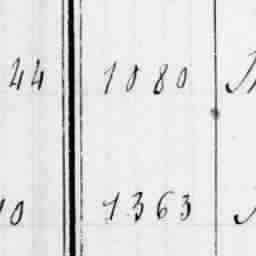 44 1080
10 1363